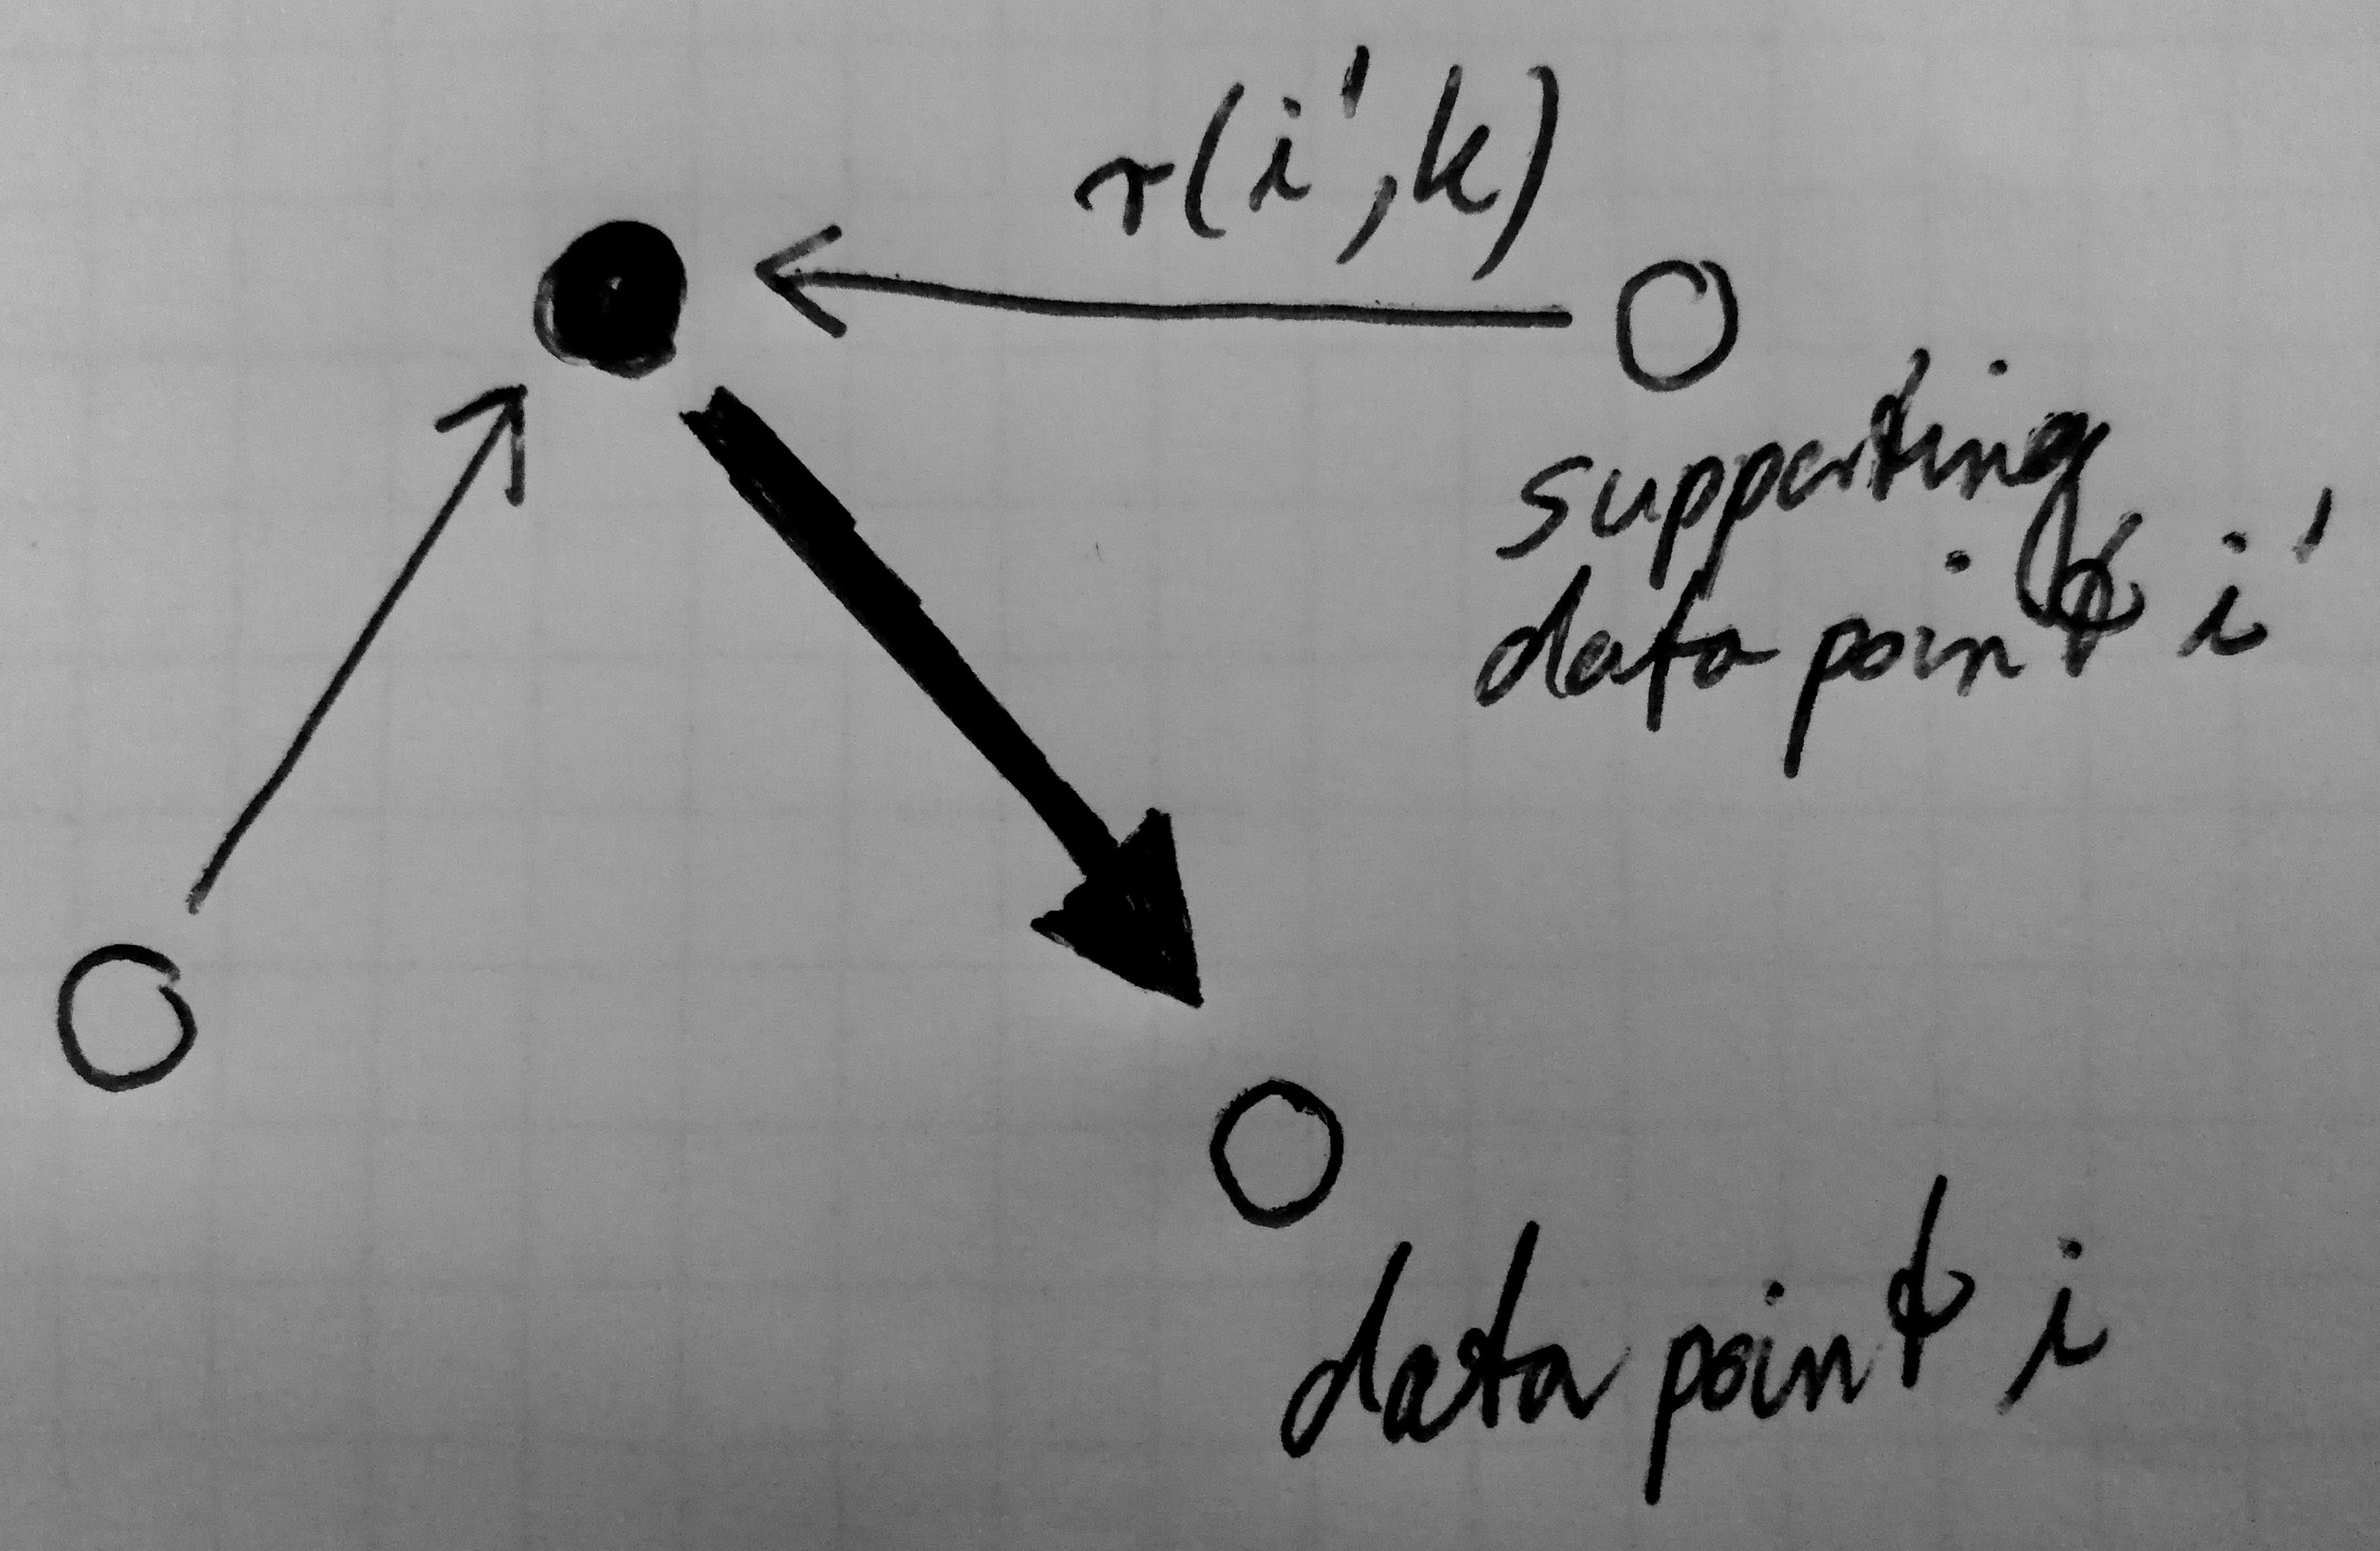 r(i',k)
supporting
data point i'
data point i